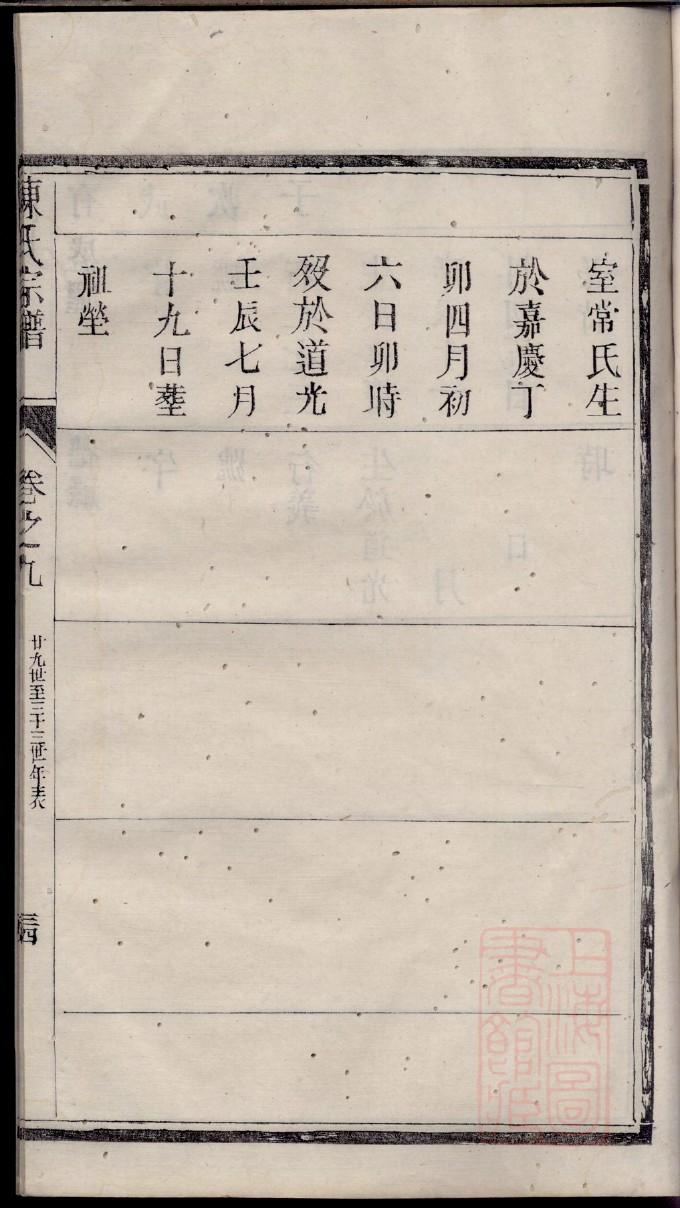 室常氏生
於嘉慶丁
卯四月初
六日卯時
歿於道光
壬辰七月
十九日塟
祖塋
陳氏宗譜
卷之九
廿九世至三十三世年表
上海圖
書館藏